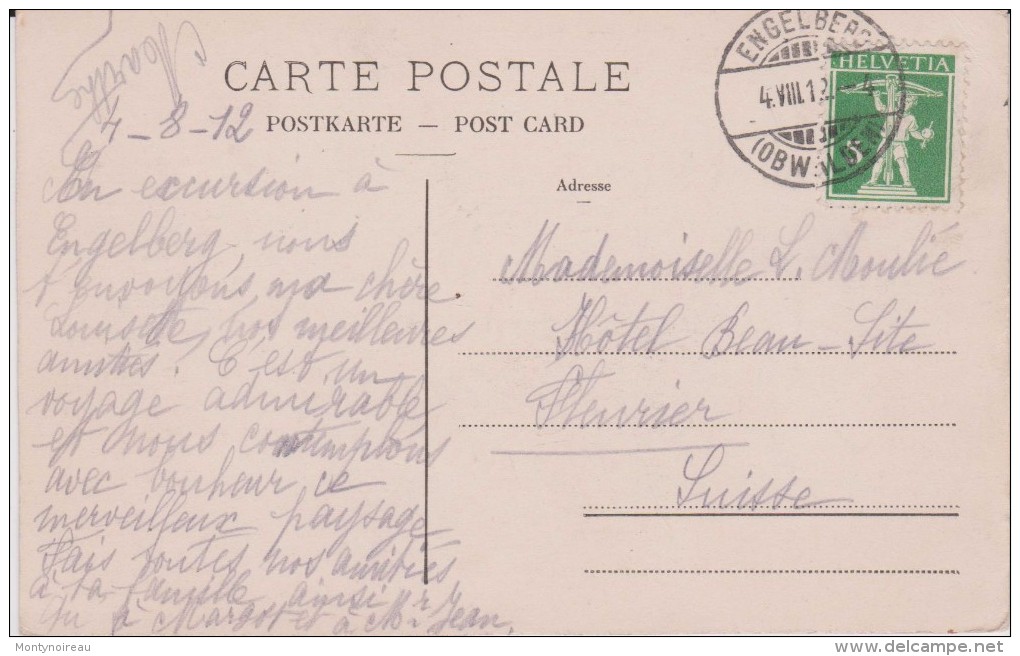 Marthe
CARTE POSTALE
4-8-12
POSTKARTE — POST CARD
ENGELBERG
4.VIII.12.-4
(OBWALDEN)
HELVETIA
5
Adresse
En excursion à
Engelberg, nous
t'envoyons, ma chère
Louisette, nos meilleures
amitiés. C'est un
voyage admirable
et nous contemplons
avec bonheur ce
merveilleux paysage
Fais toutes nos amitiés
à ta famille ainsi
qu'à Margot et à Mr Jean.
Mademoiselle L. Moulié
Hôtel Beau-Site
Fleurier
Suisse
Montynoireau
delcampe.net